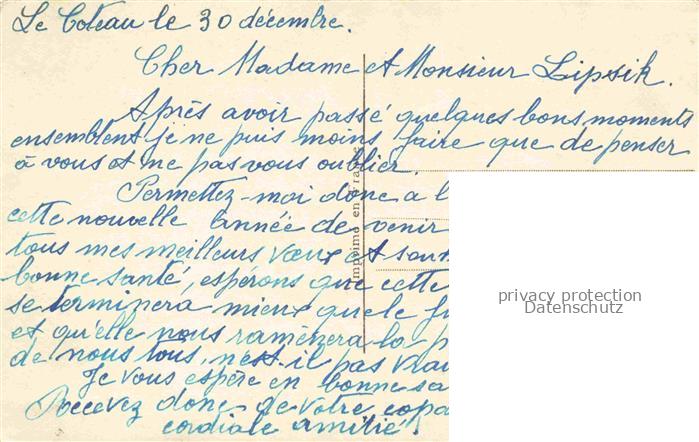 Le Coteau le 30 décembre.
Cher Madame et Monsieur Lipsik.
Après avoir passé quelques bons moments
ensemblent je ne puis moins faire que de penser
à vous et ne pas vous oublier.
Permettez-moi donc a l
cette nouvelle année de venir
tous mes meilleurs vœux et
bonne santé, espérons que cette
se terminera mieux que le
et qu'elle nous ramènera la p
de nous tous, n'est-il pas vrai
Je vous espère en bonne sa
Recevez donc de votre copa
cordiale amitié.
Imprimé en France
privacy protection
Datenschutz